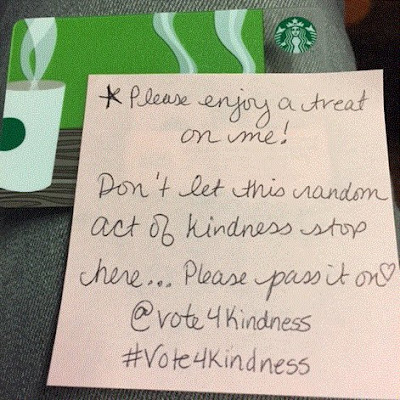 *Please enjoy a treat
on me!
Don't let this random
act of kindness stop
here... Please pass it on♡
@vote4kindness
#Vote4Kindness